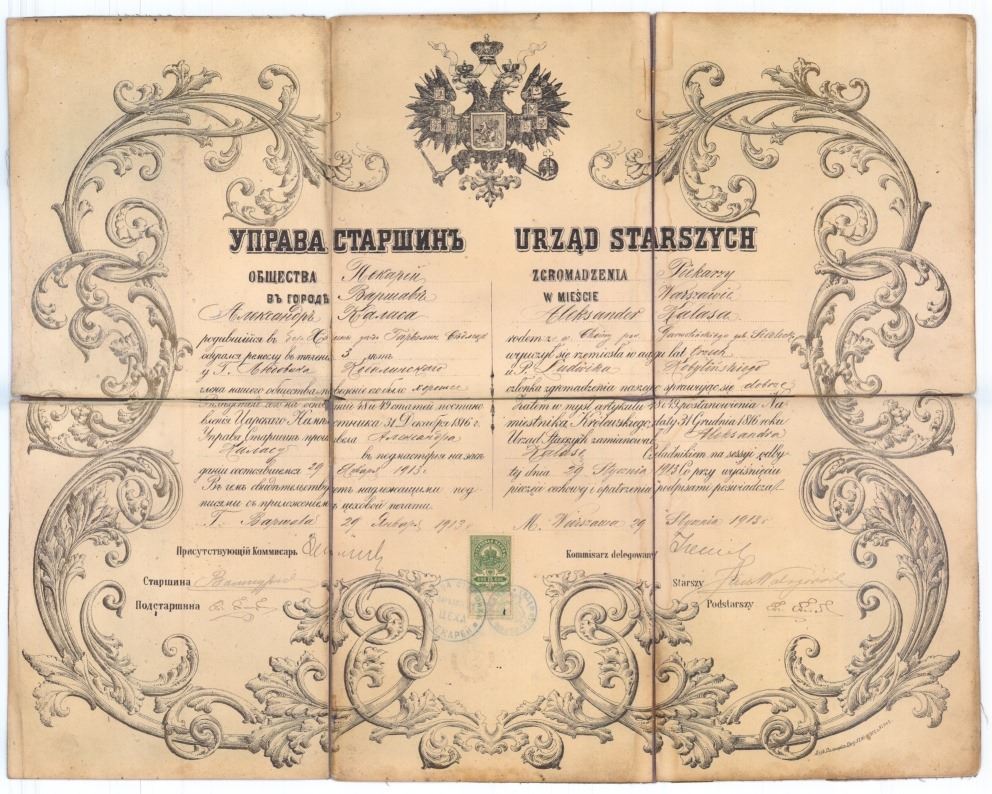 УПРАВА СТАРШИНЪ
ОБЩЕСТВА Пекарей
ВЪ ГОРОДѢ Варшавѣ
Александръ Каласа
родившійся въ
обучался ремеслу въ теченіи 3 лѣтъ
у Г. Людовика Кобылинскаго
члена нашего общества поведенія особой хорошее
и 49 статей постано
вленія Царскаго Намѣстника 31 Декабря 1816 г.
Управа Старшинъ произвела Александра
Каласу въ подмастерья на засѣ
даніи состоявшемся 29 Января 1913 г
Въ чемъ свидѣтельствуетъ надлежащими под
писями съ приложеніемъ цеховой печати.
Г. Варшава 29 Января 1913 г
Присутствующій Комисарь
Старшина
Подстаршина
URZĄD STARSZYCH
ZGROMADZENIA Piekarzy
W MIEŚCIE Warszawie
Aleksander Kalasa
rodem z w. gub. Siedleckiej
wyuczył się rzemiosła w ciągu lat trzech
u P. Ludwika Kobylińskiego
członka zgromadzenia naszego sprawując się dobrze
Zatem w myśl artykułu 48 i 49 postanowienia Na
miestnika Królewskiego daty 31 Grudnia 1816 roku
Urząd Starszych zamianował Aleksandra
Kalasę Czeladnikiem na sessyi odby
tej dnia 29 Stycznia 1913 Co przy wyciśnięciu
pieczęci cechowej i opatrzeniu podpisami poświadcza.
M. Warszawa 29 Stycznia 1913 r
Komisarz delegowany
Starszy
Podstarszy
ЦЕХА